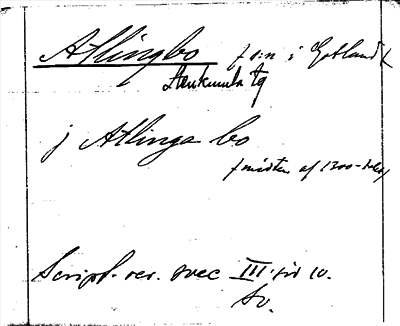 Atlingbo sn i Gotland
Stenkumla tg
j Atlinga bo
(midten af 1300-talet)
Script. rer. svec III. sid 10.
Sv.